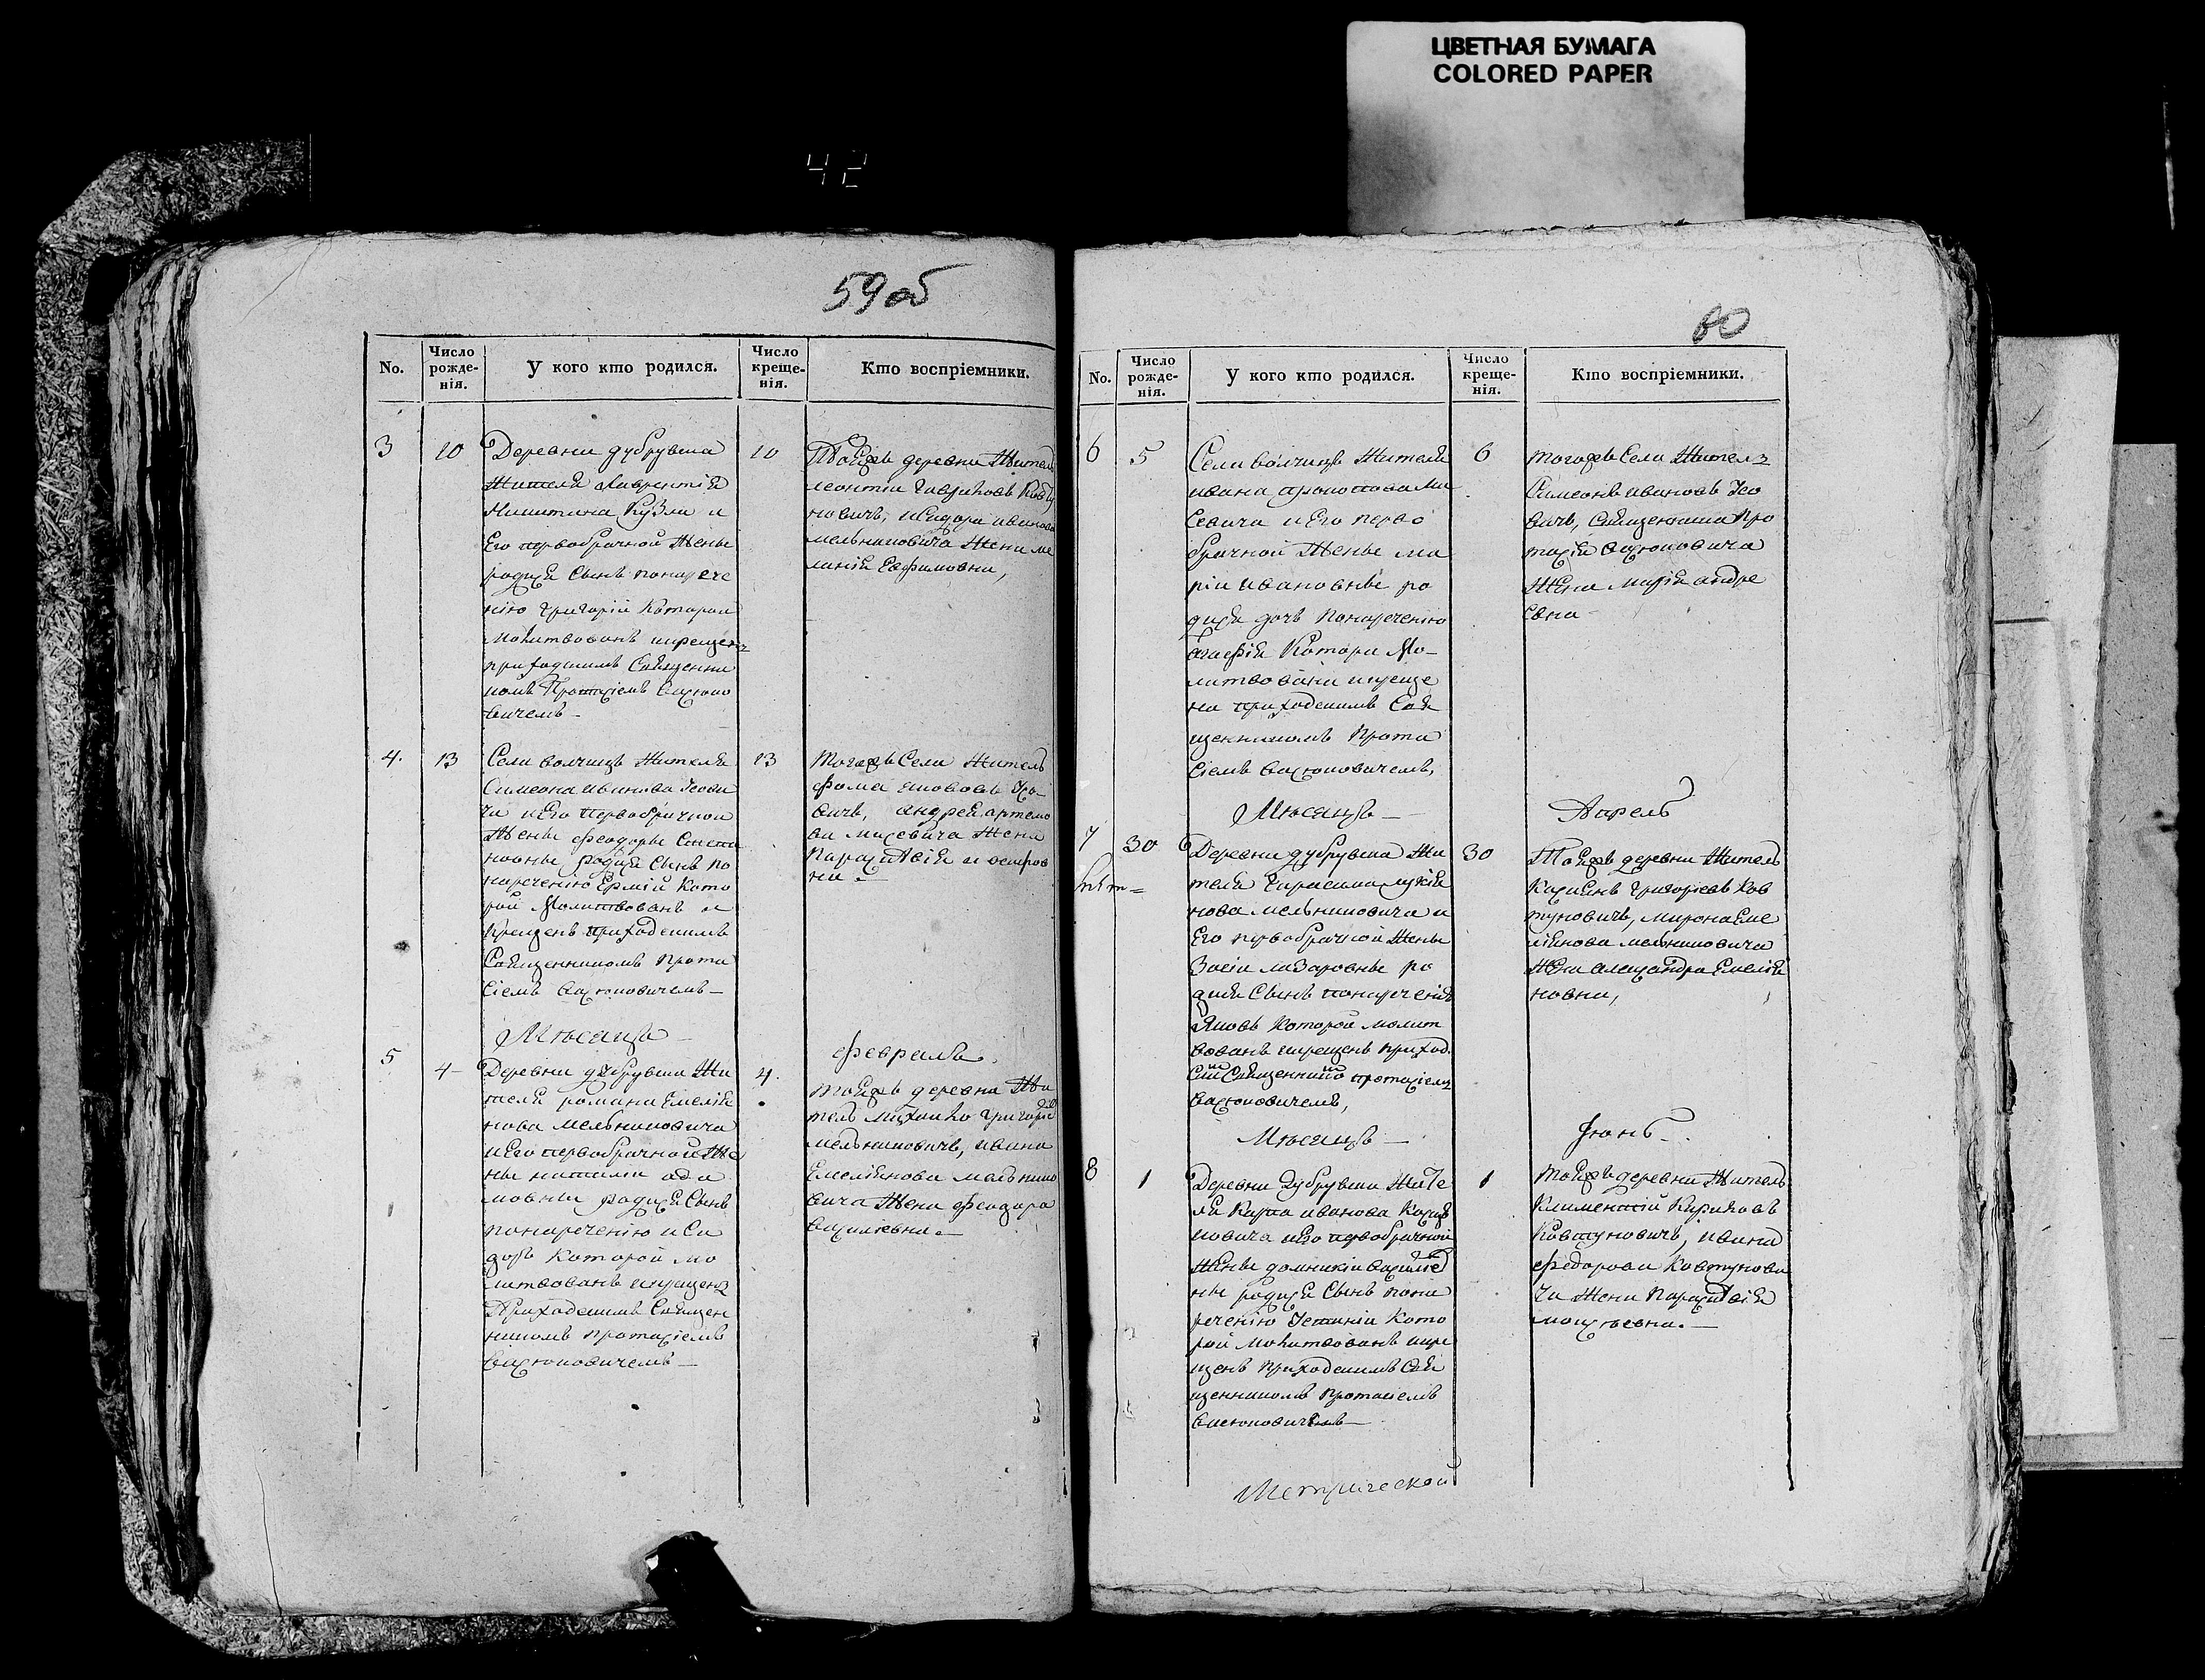 ЦВЕТНАЯ БУМАГА
COLORED PAPER
42
59 об
No.
Число рожде-нія.
У кого кто родился.
Число креще-нія.
Кто воспріемники.
3 10 10
Деревни дубрувка
Жителя Лаврентія
Никитина Кузли и
Его первобрачной Жены
родися Сынъ понарече
нію Григорій Которои
Молитвованъ икрещенъ
приходскимъ Священни
комъ Протасіемъ
вичемъ
Тойжъ деревни Жители
леонтіи
новичъ, Исидора иванова
мельниковича Жена ме
ланія Евфимовни,
4. 13 13
Села волчицъ Жителя
Симеона иванова Усови
ча иЕго первобрачнои
Жены феодоры Степа
новны родися Сынъ по
нареченію Ермій Кото
рои Молитвованъ и
Крещенъ приходскимъ
Священникомъ Прота
сіемъ васюковичемъ
Тогожъ Села Житель
фома яковавъ Усо
вичъ, андрей артемо
ва мисевича Жена
Параскевія
на
Мѣсяцъ
февраль
5 4 4.
Деревни дубрувки Жи
теля романа Емелія
нова Мельниковича
иЕго первобрачной Же
ны наталіи ада
мовны родися Сынъ
понареченію иСи
доръ Которой мо
литвованъ икрещенъ
Приходскимъ Священ
никомъ протасіемъ
васюковичемъ
тойжъ деревна Жи
тель Михаило Григорів
мельниковичъ, ивана
Емеліянова мельнико
вича Жена феодора
василіевна
60
No.
Число рожде-нія.
У кого кто родился.
Число креще-нія.
Кто воспріемники.
6 5 6
Села волчицъ Жителя
ивана прокопова Ми
севича иЕго перво
брачной Жены ма
ріи ивановны ро
дися дочъ понареченію
агафія Котора Мо
литвована икреще
на приходскимъ Свя
щенникомъ прота
сіемъ васюковичемъ,
тогожъ Села Житель
Симеонъ ивановъ Усо
вичъ, Священника про
тасія васюковича
Жена Марія андре
евна
Мѣсяцъ
Апрель
7 30 30
Деревни дубрувка Жи
теля Герасима лукія
нова мельниковича и
Его первобрачной Жены
Зосіи лазаровны ро
дися Сынъ понареченію
Яковъ Которой молит
вованъ икрещенъ приход
Священника протасіемъ
васюковичемъ,
Тойжъ деревни Житель
Касіянъ Григоріевъ Ков
туновичъ, мирона Еме
ліянова мельниковича
Жена александра Емелія
новна,
Мѣсяцъ
Іюнь
8 1 1
Деревни дубрувки Жите
ля Карпа иванова
новича иЕго первобрачной
Жены домникіи василіев
ны родися Сынъ пона
реченію Устиніи Кото
рой молитвованъ икре
щенъ приходскимъ Свя
щенникомъ протасіемъ
васюковичемъ
Тойжъ деревни Житель
Климентій Кириковъ
Ковтуновичъ, ивана
федорова Ковтунови
ча Жена Параскевія
моисѣевна.
Метрической